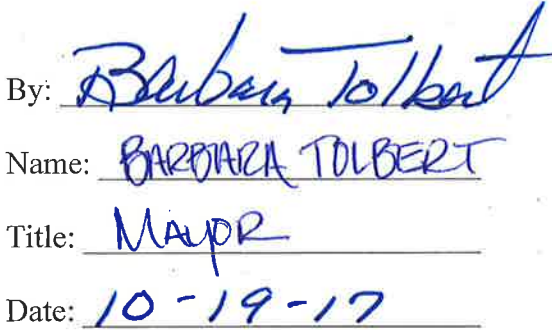 By: Barbara Tolbert
Name: BARBARA TOLBERT
Title: MAYOR
Date: 10-19-17